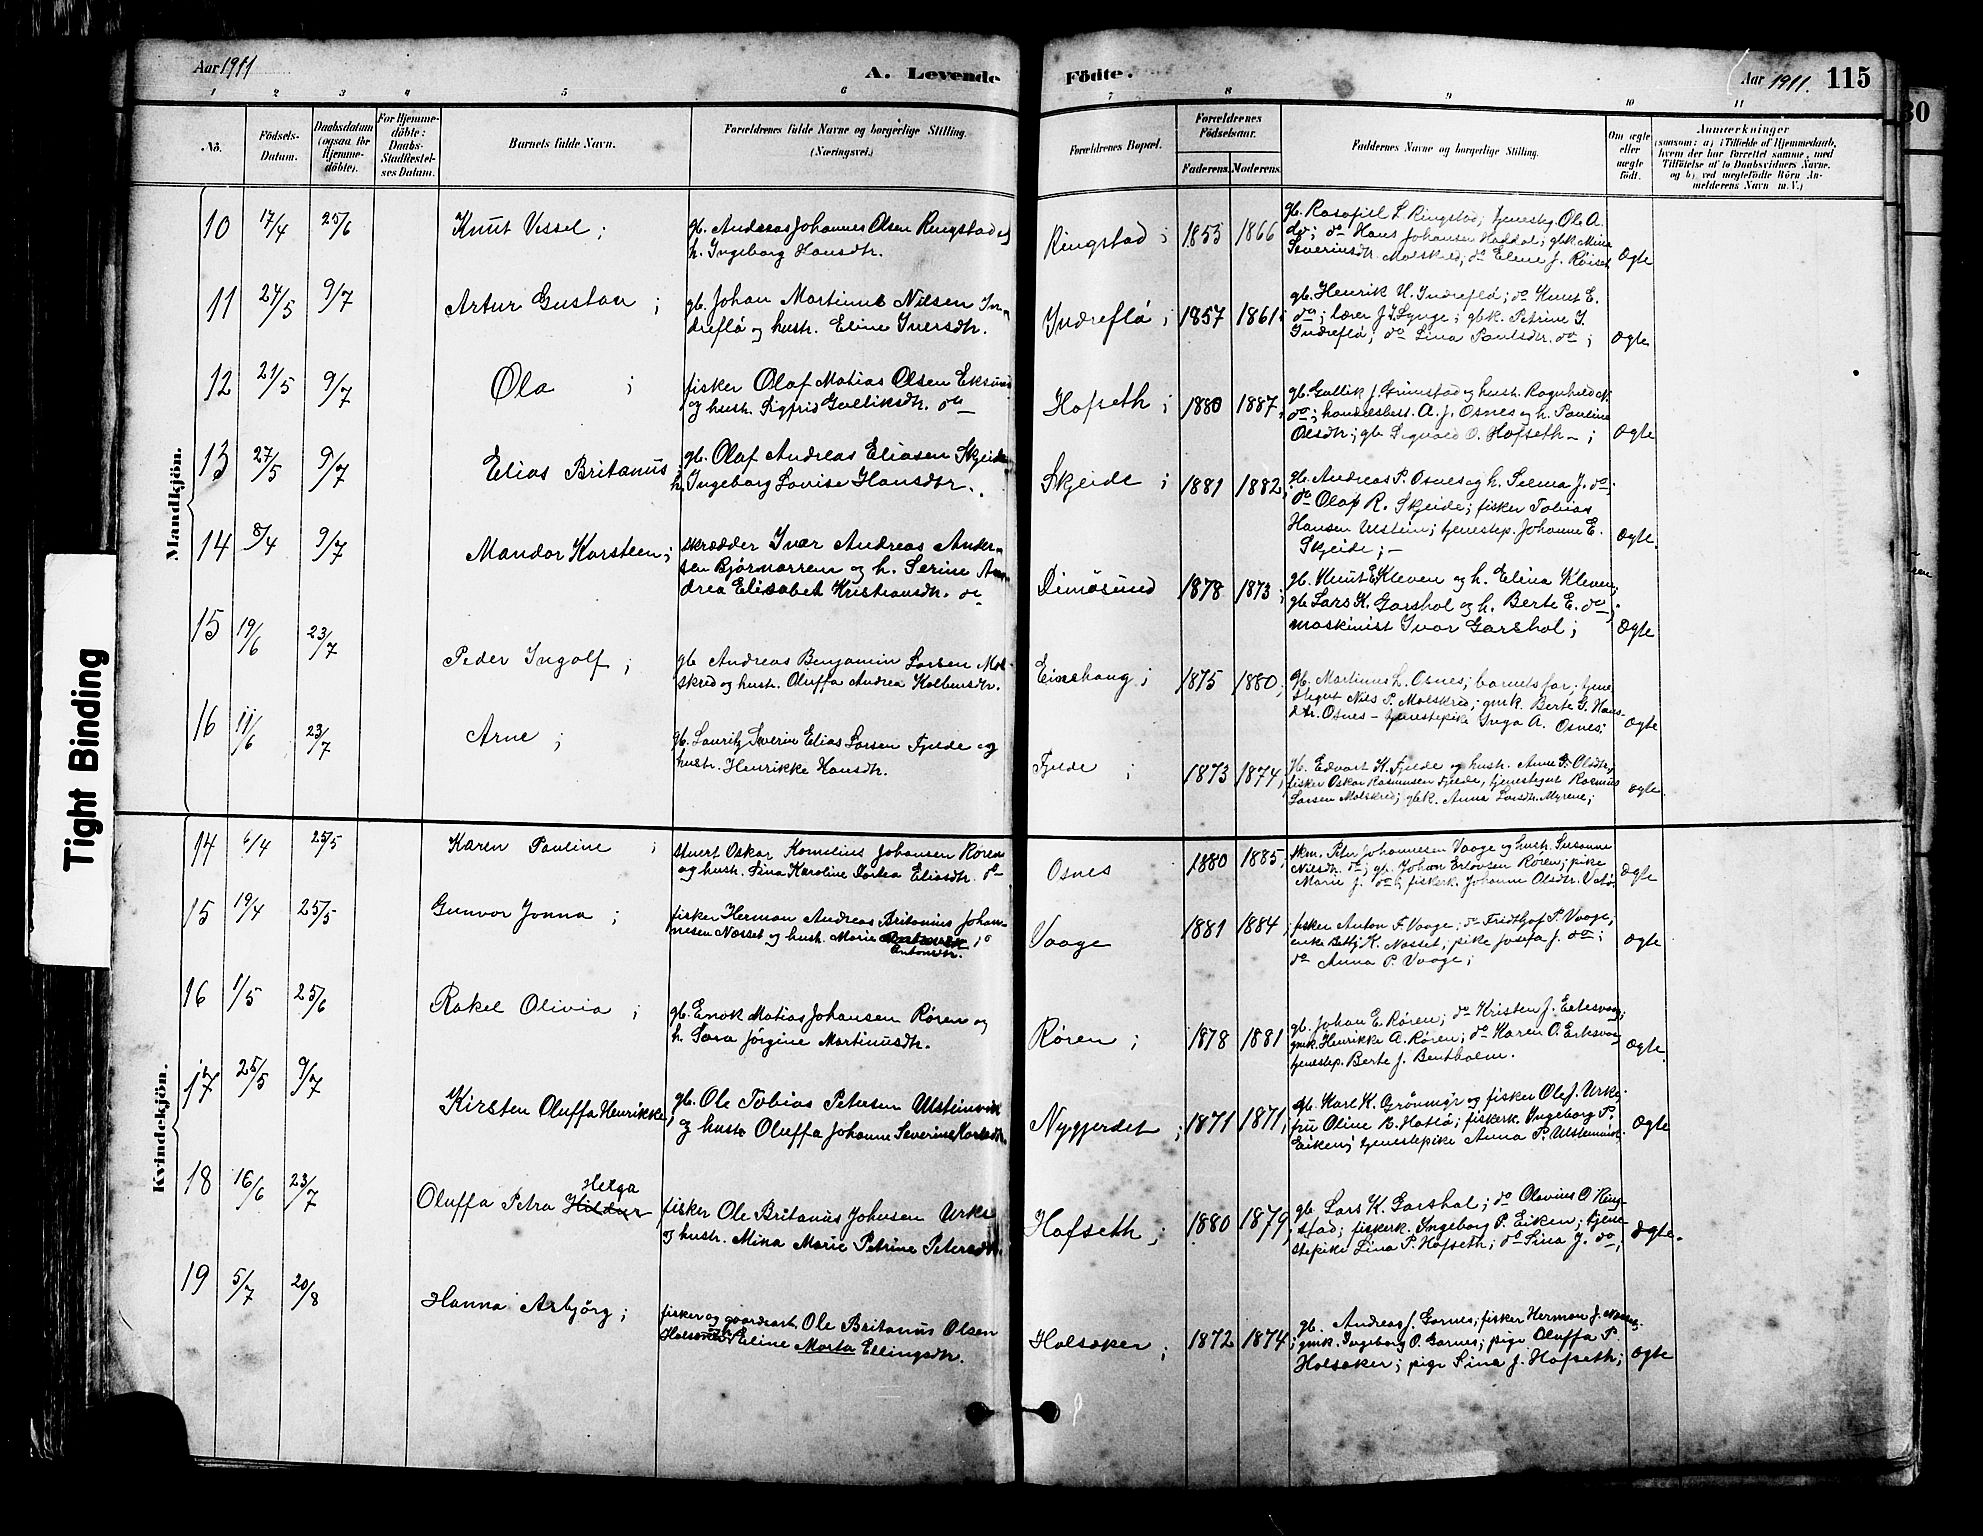 Aar 1911
A. Levende
Fødte.
Aar 1911. 115
30
1 2 3 4 5 6 7 8 9 10 11
No.
Födsels-
Datum.
Daabsdatum
(ogsaa for
Hjemme-
döbte).
For Hjemme-
döbte:
Daabs-
Stadfæstel-
ses Datum.
Barnets fulde Navn.
Forældrenes fulde Navne og borgerlige Stilling.
(Næringsvei.)
Forældrenes Bopæl.
Forældrenes
Födselsaar.
Faderens. Moderens.
Faddernes Navne og borgerlige Stilling.
Om ægte
eller
uægte
født.
Anmærkninger
(saasom: a) i Tilfælde af Hjemmedaab,
hvem der har forrettet samme, med
Tilföielse af to Daabsvidners Navne,
og b) ved uægtefödte Börn An-
melderens Navn m. V.)
Mandkjön.
10 17/4 25/6 Knut Vessel;
gb. Andreas Johannes Olsen Ringstad og
h. Ingeborg Hansdtr.
Ringstad; 1853 1866
gb. Rasofiel L. Ringstad; tjenestg. Ole A.
do; do Hans Johansen Haddal; gbk. Mina
Severinsdtr. Molskred; do Elene J. Røiset
Ægte
11 24/5 9/7 Artur Gustav;
gb. Johan Martinus Nilsen In-
dreflø og hustr. Eline Iversdtr.
Indreflø; 1857 1861;
gb. Henrik H. Indreflø; do Knut E.
do; lærer J. I. Lynge; gbk. Petrine I.
Indreflø; do Lina Paulsdtr. do;
Ægte
12 21/5 9/7 Ola;
fisker Olaf Matias Olsen Eksund
og hustr. Sigfrid Gulliksdtr. do
Hofseth; 1880 1887,
gb. Gullik J. Grimstad og hustr. Ragnhild N.
do; handelsbest. A. J. Osnes og h. Pauline
Olsdtr; gb. Sigvald O. Hofseth -;
Ægte
13 27/5 9/7 Elias Britanus
gb. Olaf Andreas Eliasen Skjeide
h. Ingeborg Lovise Hansdtr.
Skjeide; 1881 1882
gb. Andreas P. Osnes og h. Selma J. do,
do Olaf R. Skjeide; fisker Tobias
Hansen Ulstein; tjenestep. Johanne E.
Skjeide; -
Ægte.
14 8/4 9/7 Mandor Karsteen;
skrædder Ivar Andreas Ander-
sen Bjørnarrem og h. Serine An-
drea Elisabet Kristiansdtr. do
Dimøsund 1878 1873;
gb. Knut E. Kleven og h. Elina Kleven,
gb. Lars K. Garshol og h. Berte E. do;
maskinist Ivar Garshol;
Ægte
15 19/6 23/7 Peder Ingolf;
gb. Andreas Benjamin Larsen Mol-
skred og hustr. Oluffa Andrea Kolbensdtr.
Eineshaug; 1875 1880;
gb. Martinus L. Osnes; barnets far; tjene-
stegut Nils P. Molskred; gmk. Berte G. Hans-
dtr. Osnes - tjenestepike Inga A. Osnes;
Ægte
16 11/6 23/7 Arne;
gb. Lauritz Severin Elias Larsen Fjelde og
hustr. Henrikke Hansdtr.
Fjelde; 1873 1874;
gb. Edvart K. Fjelde og hustr. Anne B. Olsdtr,
fisker Oskar Rasmussen Fjelde, tjenestegut Rasmus
Larsen Molskred; gbk. Anna Larsdtr. Myrene;
ægte.
Kvindekjön.
14 6/4 25/5 Karen Pauline;
stuert Oskar Kornelius Johansen Røren
og hustr. Lina Karoline Dortea Eliasdtr. do
Osnes 1880 1885,
skm. Peter Johannesen Vaage og hustr. Susanne
Nilsdtr. do; gb. Johan Erlovsen Røren; pike
Marie J. do; fiskerk. Johanne Olsdtr. Vatø.
Ægte
15 19/4 25/5 Gunvor Jonna;
fisker Herman Andreas Britanius Johan-
nesen Næsset og hustr. Marie do
Antonsdtr.
Vaage 1881 1884;
fisker Anton F. Vaage; do Fridthjof P. Vaage,
enke Betty K. Nesset; pike Josefa J. do;
do Anna P. Vaage;
ægte
16 1/5 25/6 Rakel Olivia;
gb. Enok Matias Johansen Røren og
h. Sara Jørgine Martinusdtr.
Røren; 1878 1881
gb. Johan E. Røren; do Kristen J. Eiksvaag;
gmk. Henrikke A. Røren; do Karen O. Eiksvaag
tjenestep. Berte J. Botholm.
ægte.
17 25/5 9/7 Kirsten Oluffa Henrikke,
gb. Ole Tobias Petersen Ulsteinvik
og hustr. Oluffa Johanne Severine Karlsdtr.
Nygjerdet; 1871 1871;
gb. Karl K. Grönmyr og fisker Ole J. Urke.
fru Oline B. Hatlø; fiskerk. Ingeborg P.
Eiken; tjenestepike Anna P. Ulsteinvik;
Ægte
18 16/6 23/7 Oluffa Petra Hildur Helga
fisker Ole Britanus Johnsen Urke
og hustr. Mina Marie Petrine Petersdtr.
Hofseth; 1880 1879,
gb. Lars K. Garshol; do Olavius O. Ring-
stad; fiskerk. Ingeborg P. Eiken; tjene-
stepike Lina P. Hofseth; do Lina J. do;
ægte.
19 5/7 20/8 Hanna Asbjørg;
fisker og gaardearb. Ole Britanus Olsen
Holsaker Eline Marta Ellingsdtr.
Holsaker; 1872 1874;
gb. Andreas J. Garnes; fisker Herman J. Næsset;
gmk. Ingeborg O. Garnes; pige Oluffa P.
Holsaker; pige Lina J. Hofseth;
ægte
Tight Binding